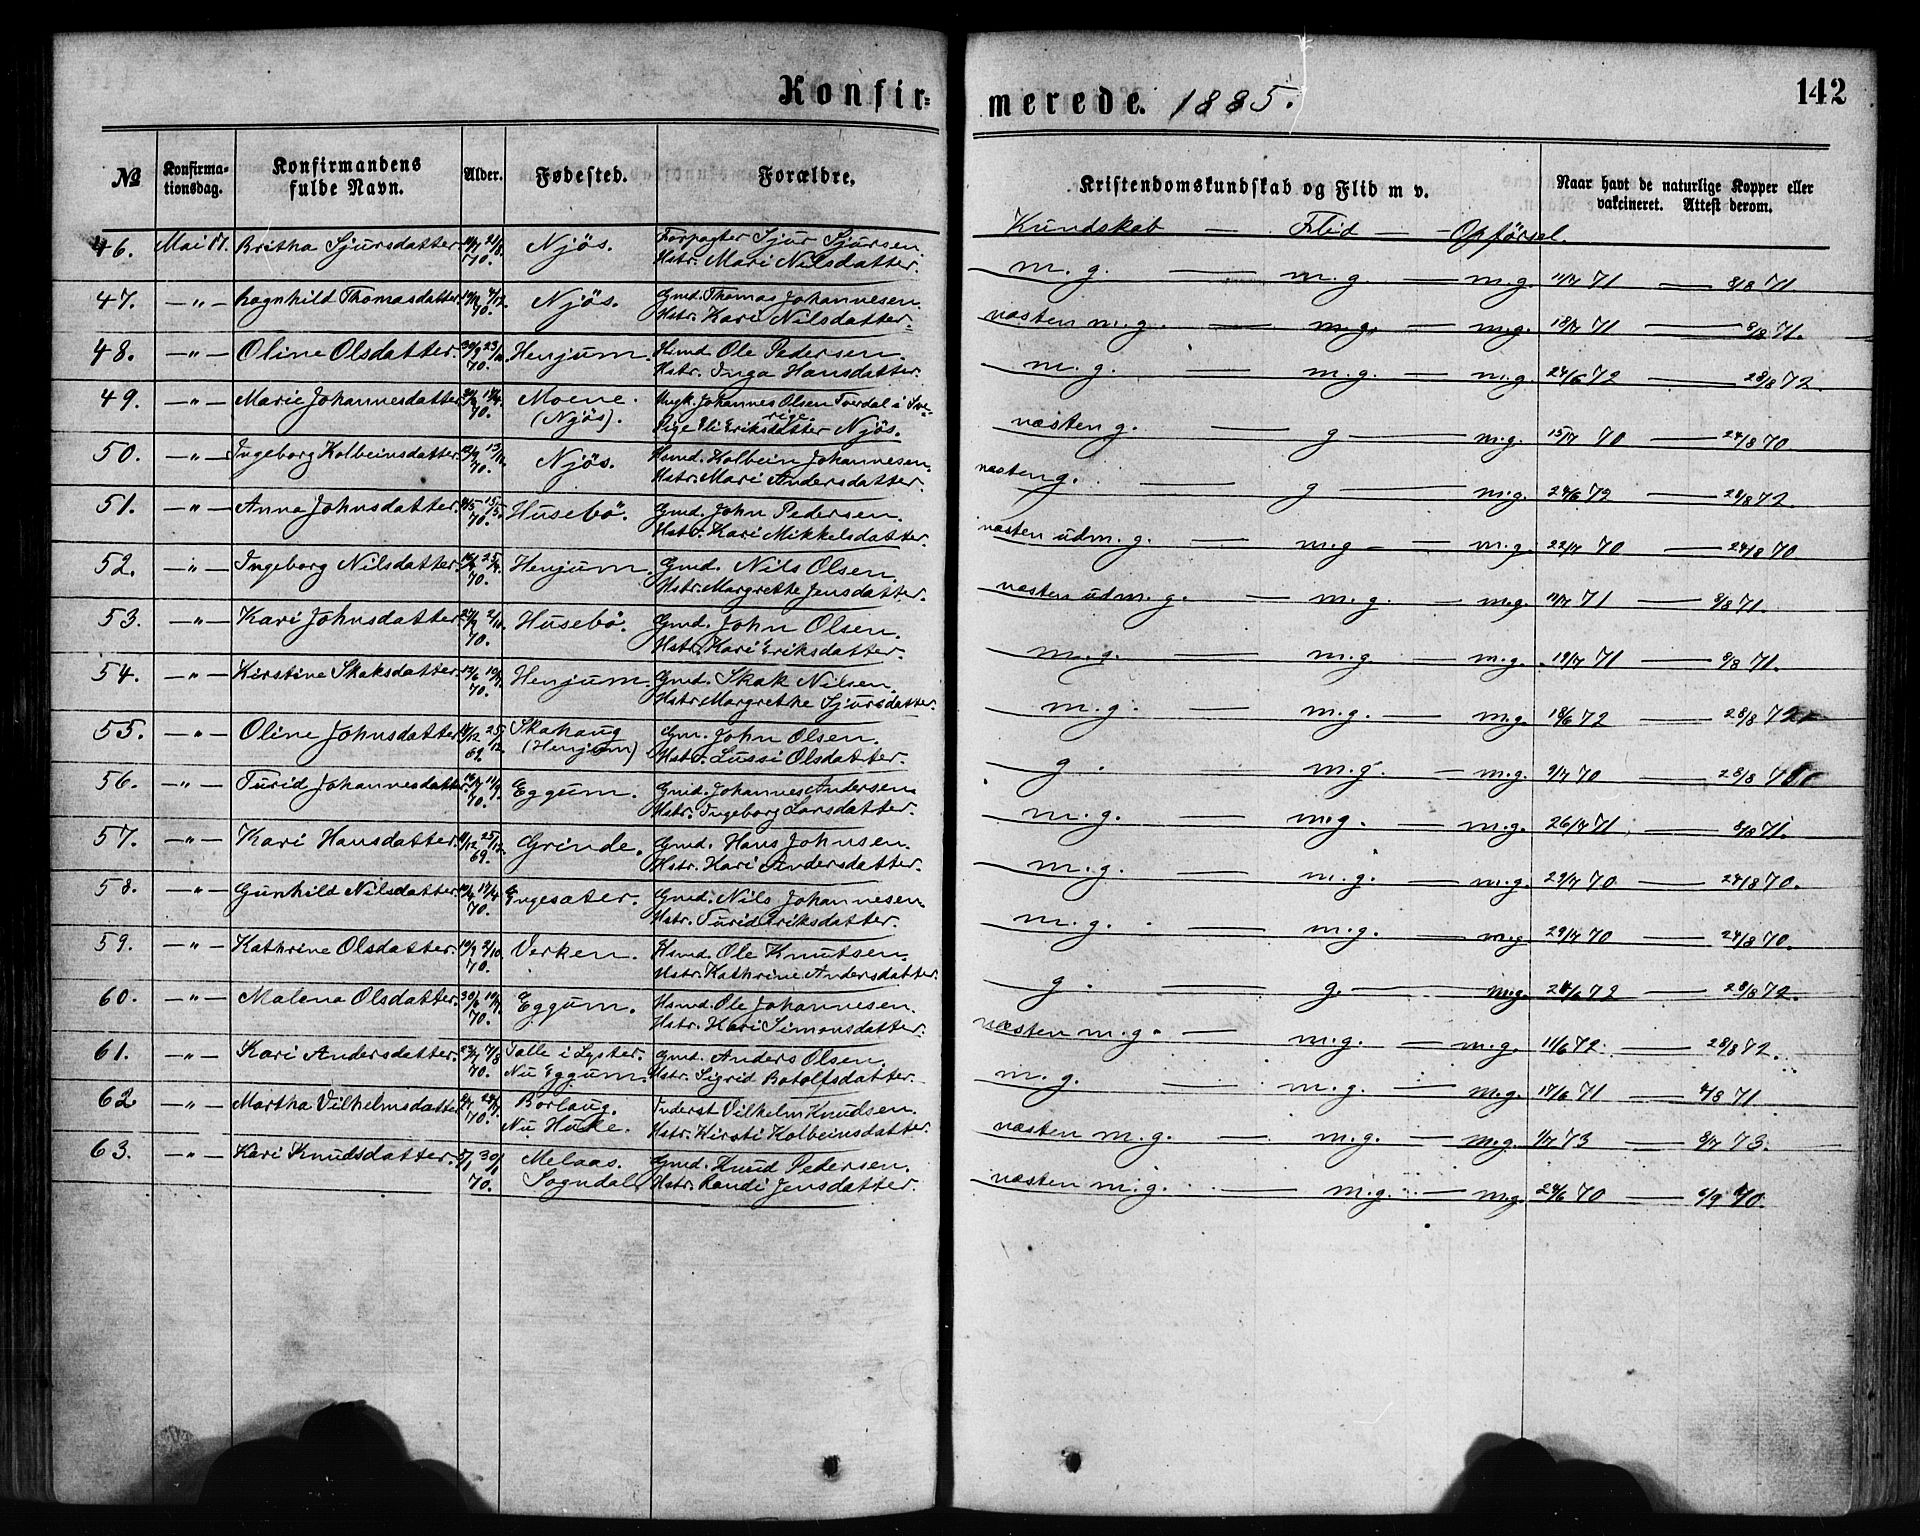 Konfir=
merede. 1885.
142
No
Konfirma-
tionsdag.
Konfirmandens
fulde Navn.
Alder.
Fødested.
Forældre.
Kristendomskundskab og Flid m v.
Naar havt de naturlige Kopper eller
vakcineret. Attest derom.
Kundskab — Flid — Opförsel.
46. Mai 17. Britha Sjursdatter 70. Njös. Forpagter Sjur Sjursen
Hstr. Mari Nilsdatter.
m. g. — m. g. — m.g. 11/7 71 — 8/8 71.
47. —"— Ragnhild Thomasdatter 70. Njös. Gmd. Thomas Johannesen
Hstr. Kari Nilsdatter.
næsten m. g. — m.g. — m.g. 18/7 71 — 8/8 71.
48. —"— Oline Olsdatter. 30/9 23/10 70. Henjum. Hsmd. Ole Pedersen.
Hstr. Inga Hansdatter.
m. g. — m.g. — m.g. 24/6 72 — 28/8 72.
49. —"— Marie Johannesdatter 70. Moene. Ungk. Johannes Olsen Tverdal i Sve-
rige
(Njös). Pige Eli Eriksdatter Njös.
næsten g. — g — m.g. 15/7 70 — 24/8 70
50. —"— Ingeborg Kolbeinsdatter 70. Njös. Hsmd. Kolbein Johannesen.
Hstr. Mari Andersdatter.
næsten g. — g — m.g. 24/6 72 — 28/8 72.
51. —"— Anna Johnsdatter 4/5 15/5 70. Husebö. Gmd. John Pedersen.
Hstr. Kari Mikkelsdatter
næsten udm. g. — m.g — m.g. 22/7 70 — 24/8 70
52. —"— Ingeborg Nilsdatter 70. Henjum. Gmd. Nils Olsen.
Hstr. Margrethe Jensdatter.
næsten udm. g. — m.g. — m.g. 11/7 71 — 8/8 71.
53. —"— Kari Johnsdatter 27/9 2/10 70. Husebö. Gmd. John Olsen.
Hstr. Kari Eriksdatter.
m.g. — m.g. — m.g. 19/7 71 — 8/8 71.
54. —"— Kirstine Skaksdatter 70. Henjum. Gmd. Skak Nilsen.
Hstr. Margrethe Sjursdatter.
m.g. — m.g. — m.g. 18/6 72 — 28/8 72
55. —"— Oline Johnsdatter 69. Skahaug Gm. John Olsen.
(Henjum) Hstr. Lussi Olsdatter.
g. — m.g. — m.g. 9/7 70 — 28/8
56. —"— Turid Johannesdatter 70. Eggum. Gmd. Johannes Andersen
Hstr. Ingeborg Larsdatter.
m. g. — m.g. — m.g. 26/7 71 — 8/8 71.
57. —"— Kari Hansdatter. 11/12 25/12 69. Grinde. Gmd. Hans Johnsen.
Hstr. Kari Andersdatter.
m.g. — m.g. — m.g. 29/7 70 — 24/8 70.
58. —"— Gunhild Nilsdatter 70. Engesæter. Gmd. Nils Johannesen
Hstr. Turid Eriksdatter.
m. g. — m.g. — m.g. 29/7 70 — 24/8 70.
59. —"— Kathrine Olsdatter. 19/9 2/10 70. Verken. Hsmd. Ole Knutsen.
Hstr. Kathrine Andersdatter.
g. — g. — m.g. 24/6 72 — 28/8 72.
60. —"— Malena Olsdatter. 70. Eggum. Hsmd. Ole Johannesen.
Hstr. Kari Simonsdatter.
næsten m. g. — m.g. — m.g. 11/6 72. — 28/8 72.
61. —"— Kari Andersdatter. 23/7 7/8 70. Talle i Lyster. Gmd. Anders Olsen.
Nu Eggum. Hstr. Sigrid Botolfsdatter.
m. g. — m.g. — m.g. 17/6 71 — 4/8 71
62 —"— Martha Vilhelmsdatter 70. Borlaug. Inderst Vilhelm Knudsen.
Nu Huke. Hstr. Kirsti Kolbeinsdatter.
næsten m.g. — m.g. — m.g. 1/7 73 — 8/7 73.
63. —"— Kari Knudsdatter. 5/1 30/1 70. Melaas. Gmd. Knud Pedersen.
Sogndal Hstr. Randi Jensdatter.
næsten m. g. — m.g. — m.g. 24/6 70 — 6/9 70.